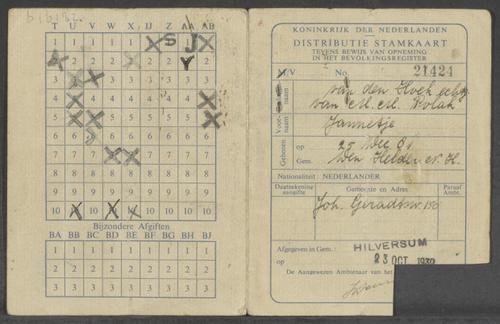 U V W X IJ Z AA AB
1 1 1 1 1 1
2 2 2 2 2 2 2 2
3 3 3 3 3 3 3 3
4 4 4 4 4 4 4 4
5 5 5 5 5 5 5 5
6 6 6 6 6 6 6 6
7 7 7 7 7 7 7 7
8 8 8 8 8 8 8 8
9 9 9 9 9 9 9 9
10 10 10 10 10 10 10 10
Bijzondere Afgiften
BA BB BC BD BE BG BH BJ
1 1 1 1 1 1 1 1
2 2 2 2 2 2 2 2
3 3 3 3 3 3 3 3
KONINKRIJK DER NEDERLANDEN
DISTRIBUTIE STAMKAART
TEVENS BEWIJS VAN OPNEMING
IN HET BEVOLKINGSREGISTER
/V No. 21424
naam van den Hoek echtg
van M. M. Polak
Voornaam Jannetje
Geboren op 25 Dec 81
Gem. Den Helder N. H.
Nationaliteit: NEDERLANDER
Dagteekening aangifte Gemeente en Adres Paraaf Ambt.
Joh. Geradtsw
Afgegeven in Gem.: HILVERSUM
op 23 OCT 1939
De Aangewezen Ambtenaar van het